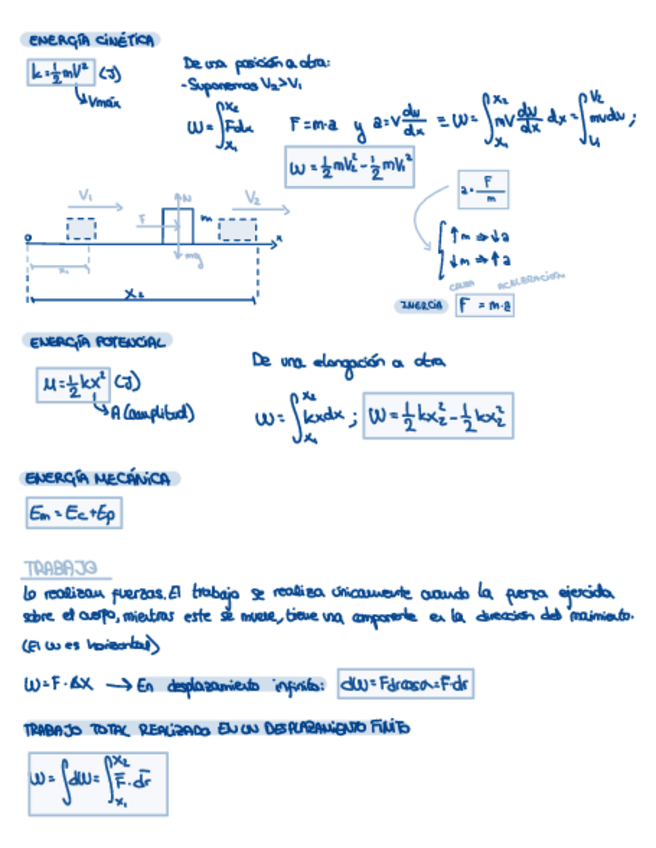 ENERGÍA CINÉTICA
k=½mV² (J)
Vmáx
De una posición a otra:
-Suponemos V₂>V₁
W=∫x₁^x₂ Fdx F=m·a y a=v dv/dx ≡ W=∫x₁^x₂ mV dv/dx dx=∫V₁^V₂ mvdv;
W=½mV₂²-½mV₁²
V₁ N V₂
F m
mg
0 x
x₁
X₂
a· F/m
↑m ⇒ ↓a
↓m ⇒ ↑a
CAUSA ACELERACIÓN
INERCIA F = m·a
ENERGÍA POTENCIAL
μ=½kx² (J)
A (amplitud)
De una elongación a otra
W=∫x₁^x₂ kxdx; W=½kx₂²-½kx₂²
ENERGÍA MECÁNICA
Em = Ec+Ep
TRABAJO
Lo realizan fuerzas. El trabajo se realiza únicamente cuando la fuerza ejercida
sobre el cuerpo, mientras este se mueve, tiene una componente en la dirección del movimiento.
(El W es horizontal)
W=F·ΔX → En desplazamiento infinito: dW=Fdrcosα=F·dr
TRABAJO TOTAL REALIZADO EN UN DESPLAZAMIENTO FINITO
W=∫dW=∫x₁^x₂ F̄·dr̄